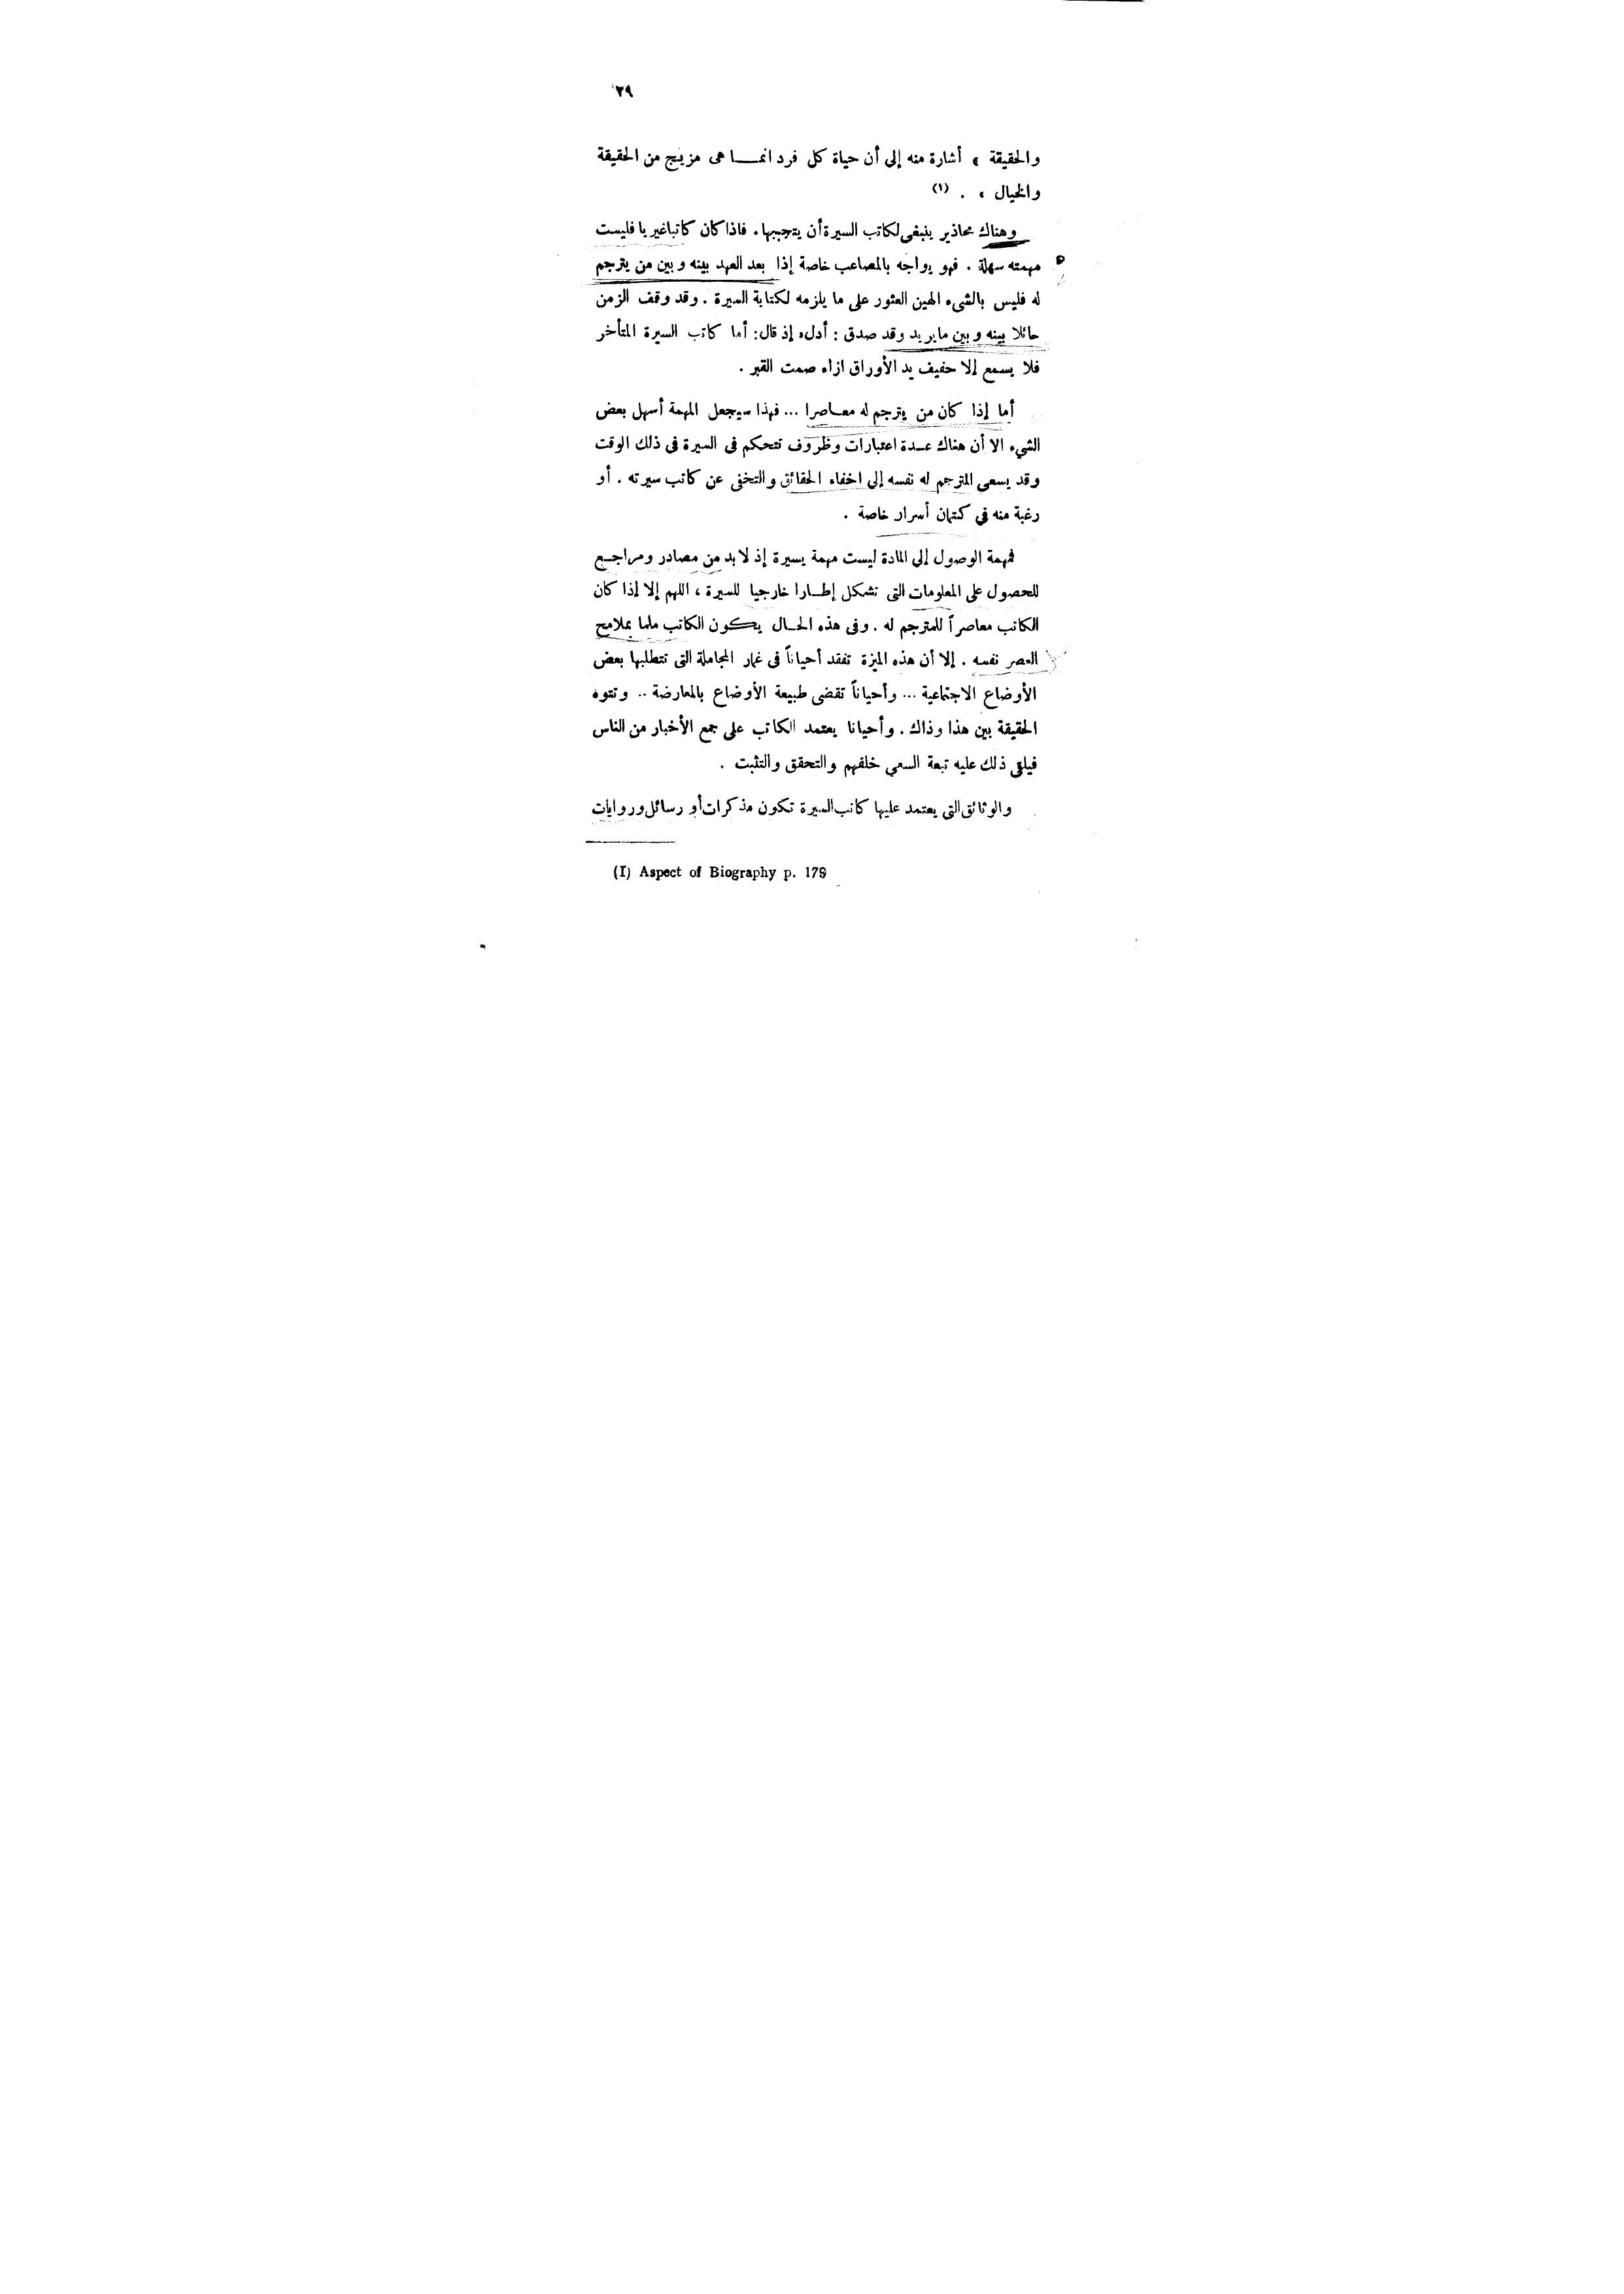 ٢٩
والحقيقة » أشارة منه إلى أن حياة كل فرد انمـــا هى مزيج من الحقيقة
والخيال » . (١)
وهناك محاذير ينبغى لكاتب السيرة أن يتجنبها . فاذا كان كاتبا غيريا فليست
مهمته سهلة . فهو يواجه بالمصاعب خاصة إذا بعد العهد بينه وبين من يترجم
له فليس بالشىء الهين العثور على ما يلزمه لكتابة السيرة . وقد وقف الزمن
حائلا بينه وبين ما يريد وقد صدق : أدل» إذ قال : أما كاتب السيرة المتأخر
فلا يسمع إلا حفيف يد الأوراق ازاء صمت القبر .
أما إذا كان من يترجم له معـاصرا ... فهذا سيجعل المهمة أسهل بعض
الشىء الا أن هناك عـدة اعتبارات وظروف تتحكم فى السيرة فى ذلك الوقت
وقد يسعى المترجم له نفسه إلى اخفاء الحقائق والتخفى عن كاتب سيرته . أو
رغبة منه فى كتمان أسرار خاصة .
فمهمة الوصول إلى المادة ليست مهمة يسيرة إذ لابد من مصادر ومراجـع
للحصول على المعلومات التى تشكل إطـارا خارجيا للسيرة ، اللهم إلا إذا كان
الكاتب معاصراً للمترجم له . وفى هذه الحـال يكون الكاتب ملما بملامح
العصر نفسه . إلا أن هذه الميزة تفقد أحياناً فى غمار المجاملة التى تتطلبها بعض
الأوضاع الاجتماعية ... وأحياناً تقضى طبيعة الأوضاع بالمعارضة .. وتتوه
الحقيقة بين هذا وذاك . وأحيانا يعتمد الكاتب على جمع الأخبار من الناس
فيلقى ذلك عليه تبعة السعى خلفهم والتحقق والتثبت .
والوثائق التى يعتمد عليها كاتب السيرة تكون مذكرات أو رسائل وروايات
(I) Aspect of Biography p. 179